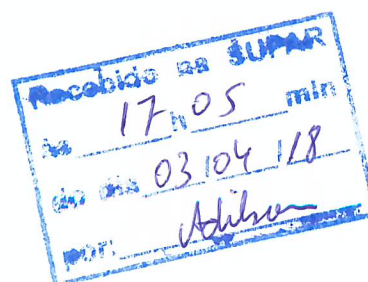 Recebido na SUPAR
às 17 h 05 min
do dia 03/04/18
por: Adilson